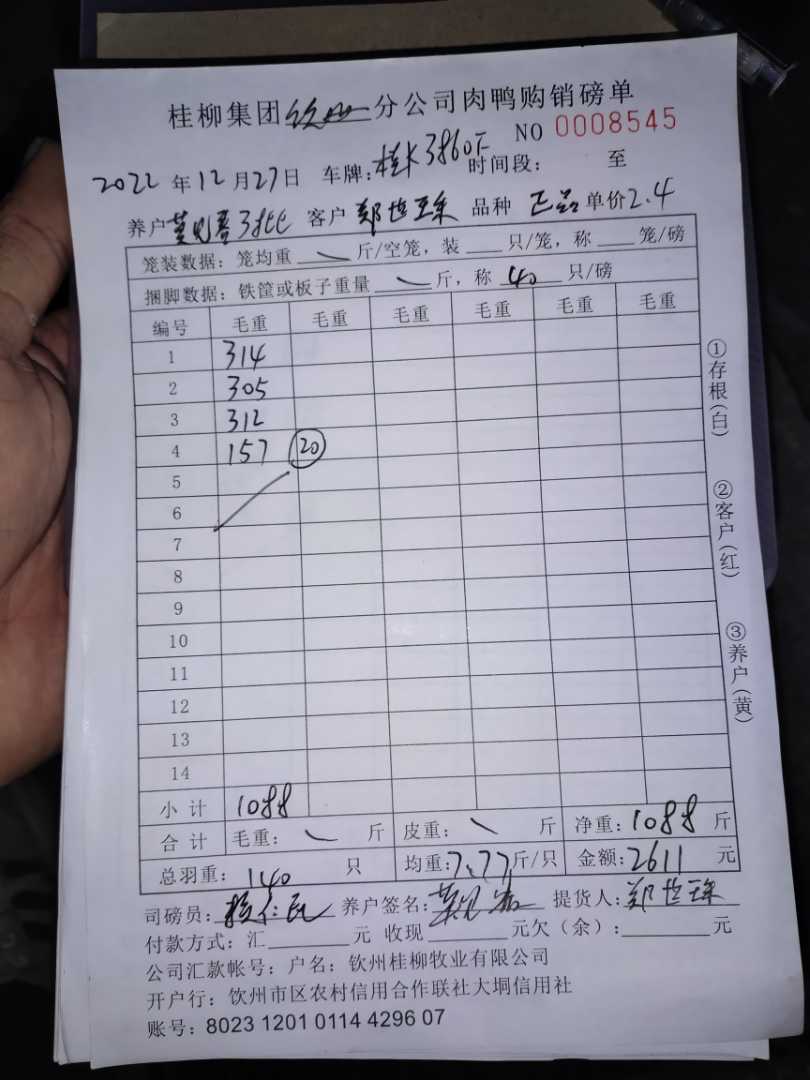 桂柳集团钦州分公司肉鸭购销磅单
NO 0008545
2022年12月27日 车牌: 时间段: 至
养户 客户 郑世 品种 正品 单价2.4
笼装数据: 笼均重 斤/空笼, 装 只/笼, 称 笼/磅
捆脚数据: 铁筐或板子重量 斤, 称 40 只/磅
编号 毛重 毛重 毛重 毛重 毛重 毛重
1 314
2 305
3 312
4 157 20
5
6
7
8
9
10
11
12
13
14
小计 1088
合计 毛重: 斤 皮重: 斤 净重: 1088 斤
总羽重: 140 只 均重: 7.77 斤/只 金额: 2611 元
司磅员: 养户签名: 提货人: 郑世
付款方式: 汇 元 收现 元欠(余): 元
公司汇款帐号: 户名: 钦州桂柳牧业有限公司
开户行: 钦州市区农村信用合作联社大垌信用社
账号: 8023 1201 0114 4296 07
①存根(白)
②客户(红)
③养户(黄)